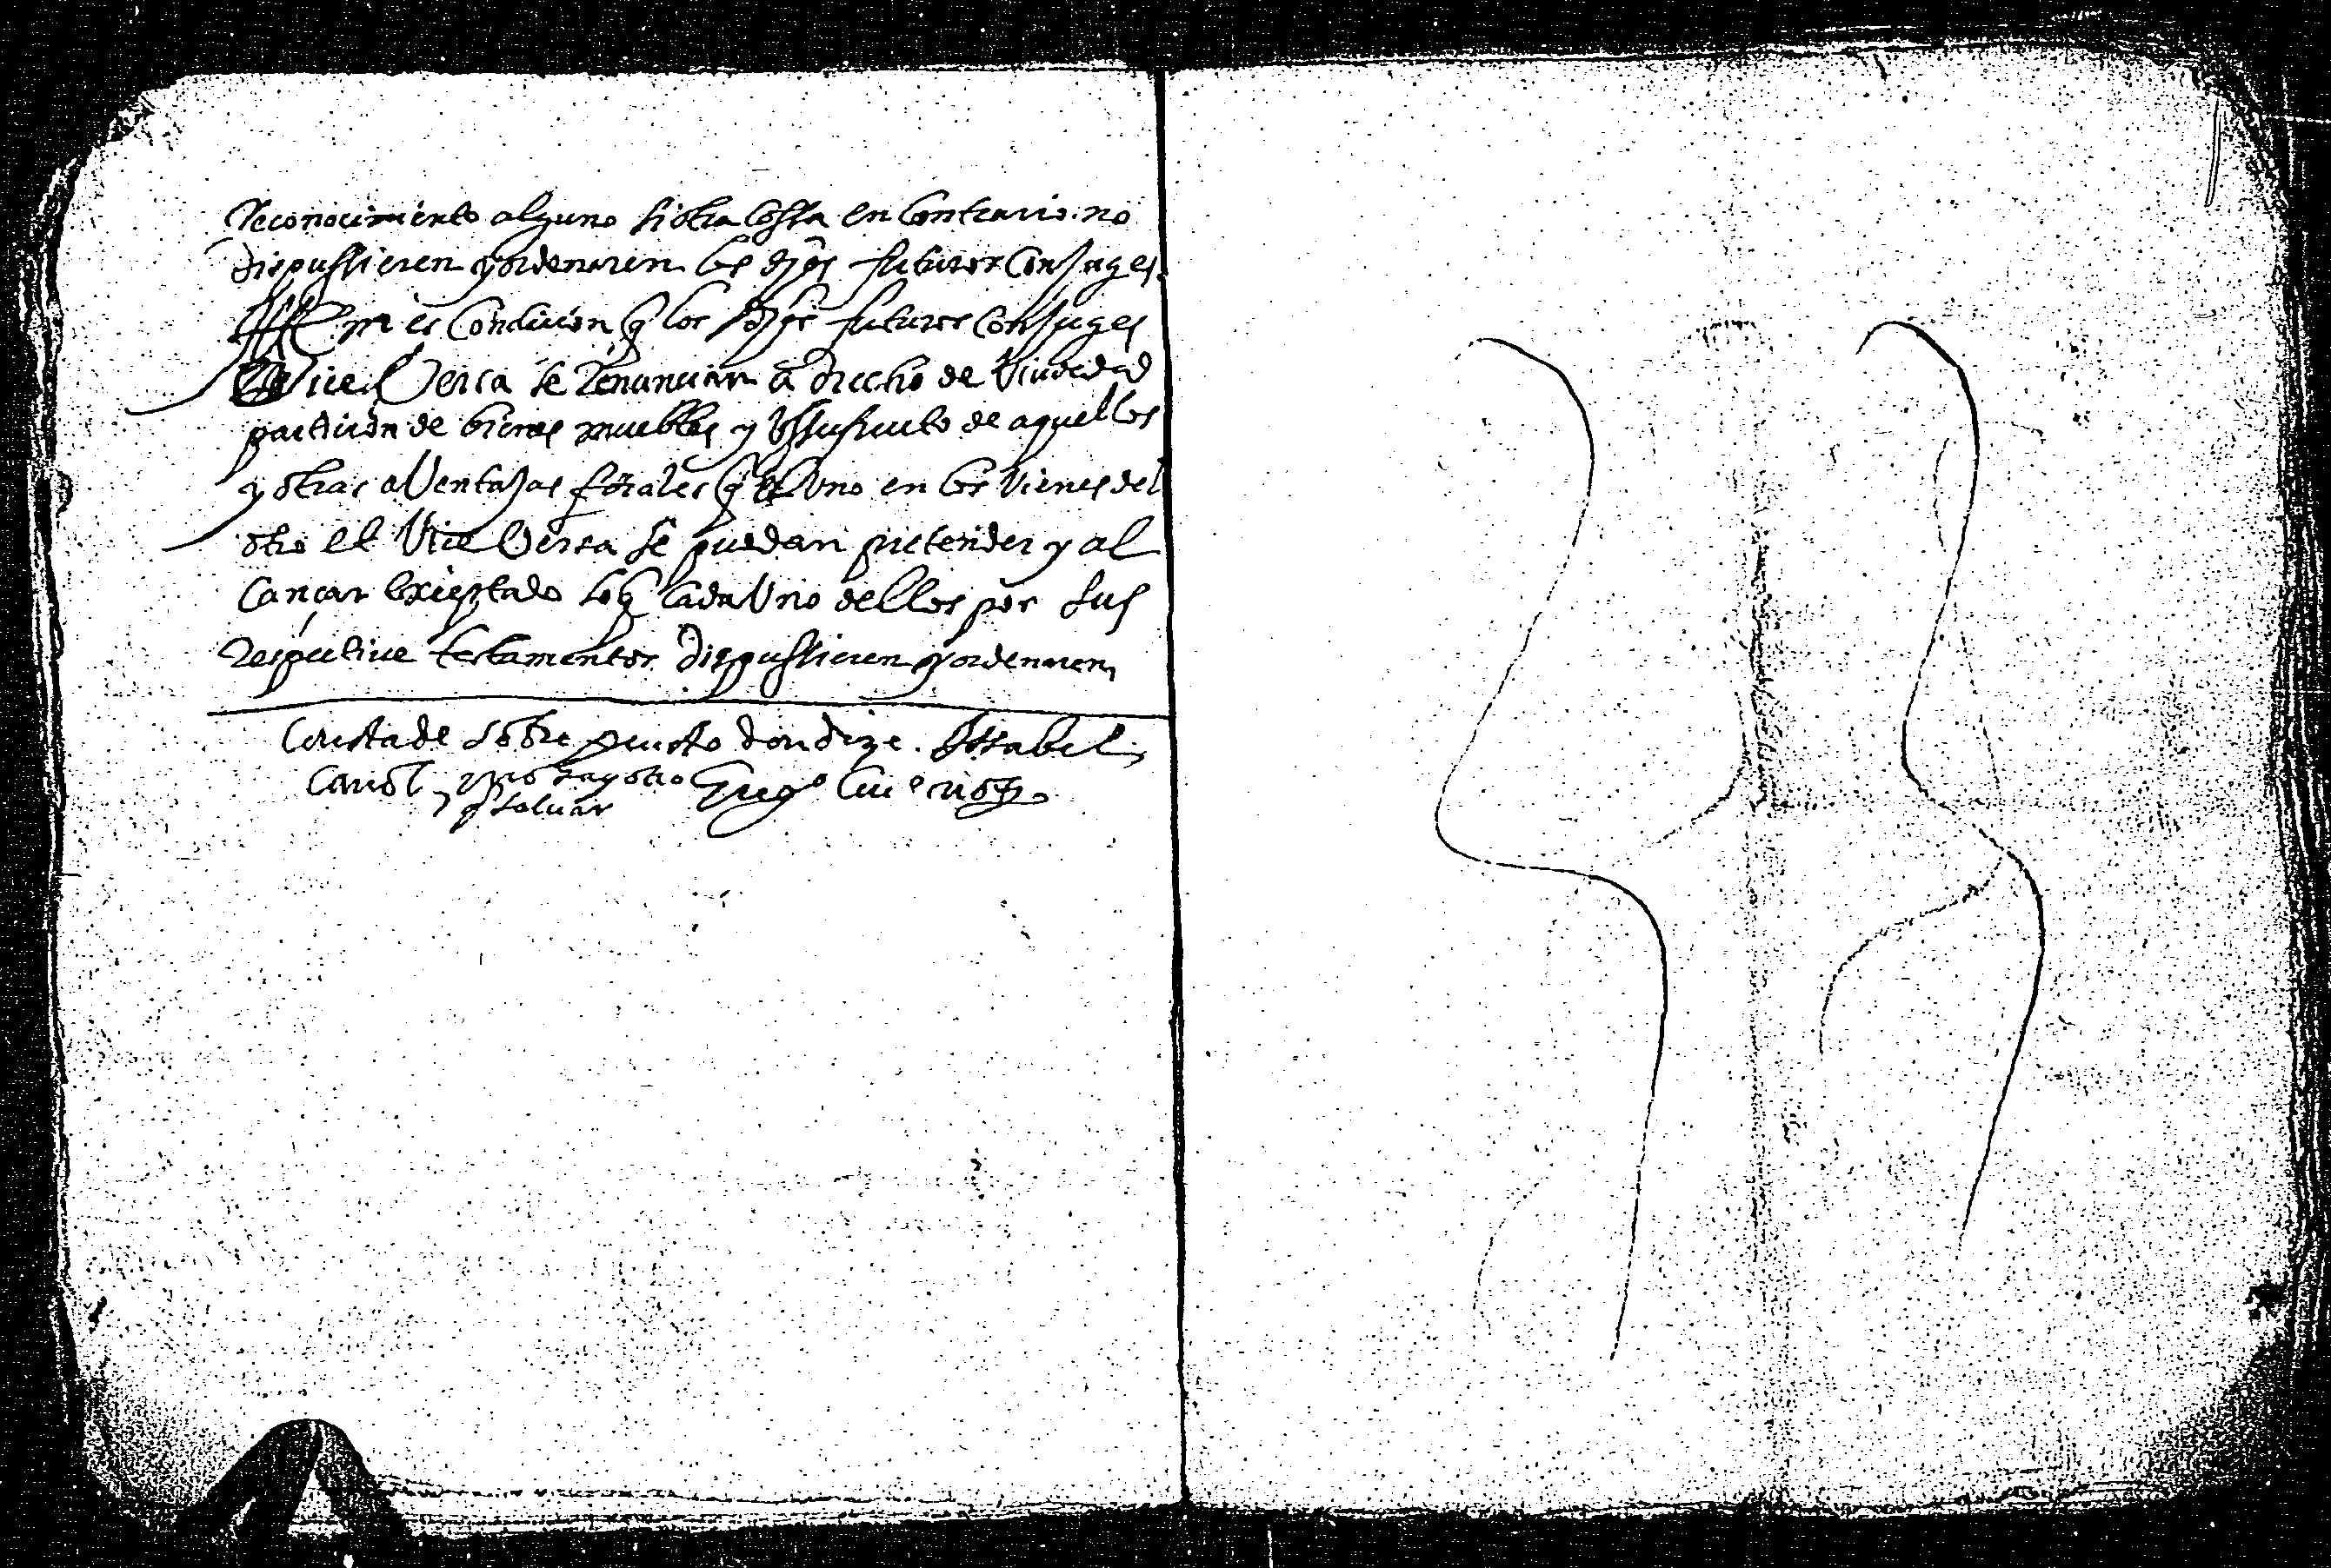 Reconocimiento alguno si otra cossa en contrario no
dispussieren y ordenaren los dhos futuros conjuges
Ittem es condicion q los sodhos futuros conjuges
Vice Versa se renuncian a drecho de Viudedad
particion de bienes muebles y Ussufructo de aquellos
y otras aVentajas forales q el Vno en los Vienes del
otro et Vice Versa se puedan pretender y al
cançar exceptado lo q cada Vno dellos por sus
respective testamentos dispussieren y ordenaren
Consta de sobre puesto don dize. Issabel
y salvar